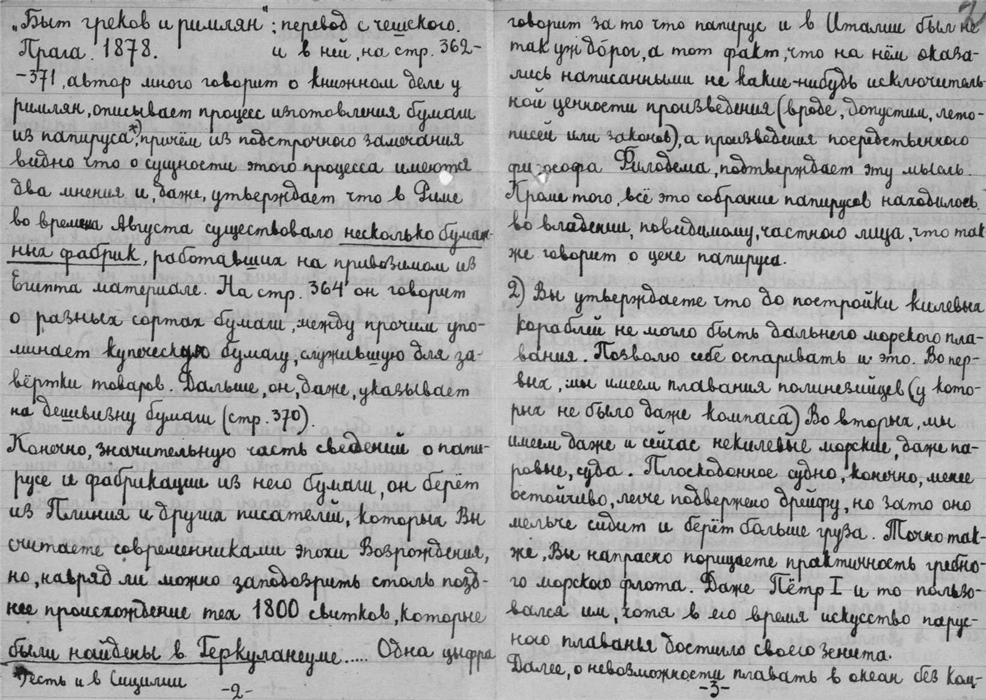 „Быт греков и римлян“; перевод с чешского.
Прага. 1878. и в ней, на стр. 362-
-371, автор много говорит о книжном деле у
римлян, описывает процесс изготовления бумаги
из папируса*), причём из подстрочного замечания
видно что о сущности этого процесса имеются
два мнения и, даже, утверждает что в Риме
во времена Августа существовало несколько бумаж-
ных фабрик, работавших на привозимом из
Египта материале. На стр. 364 он говорит
о разных сортах бумаги, между прочим упо-
минает купеческую бумагу, служившую для за-
вёртки товаров. Дальше, он, даже, указывает
на дешивизну бумаги (стр. 370).
Конечно, значительную часть сведений о папи-
русе и фабрикации из него бумаги, он берёт
из Плиния и других писателей, которых Вы
считаете современниками эпохи Возрождения,
но, наврядли можно заподозрить столь позд-
нее происхождение тех 1800 свитков, которые
были найдены в Геркулануме..... Одна цыфра
*) есть и в Сицилии
-2-
2
говорит за то что папирус и в Италии был не
так уж дорог, а тот факт, что на нём оказа-
лись написанными не какие-нибудь исключитель-
ной ценности произведения (вроде, допустим, лето-
писей или законов), а произведения посредственного
философа Филодема, подтверждает эту мысль.
Кроме того, всё это собрание папирусов находилось
во владении, повидимому, частного лица, что так
же говорит о цене папируса.
2) Вы утверждаете что до постройки килевых
кораблей не могло быть дальнего морского пла-
вания. Позволю себе оспаривать и это. Во пер-
вых, мы имеем плавания полинезийцев (у кото-
рых не было даже компаса) Во вторых, мы
имеем даже и сейчас некилевые морские, даже па-
ровые, суда. Плоскодонное судно, конечно, менее
остойчиво, легче подвержено дрейфу, но зато оно
мельче сидит и берёт больше груза. Точно так-
же, Вы напрасно порицаете практичность гребно-
го морского флота. Даже Пётр I и то пользо-
вался им, хотя в его время искусство парус-
ного плаванья достигло своего зенита.
Далее, о невозможности плавать в океан без ком-
-3-